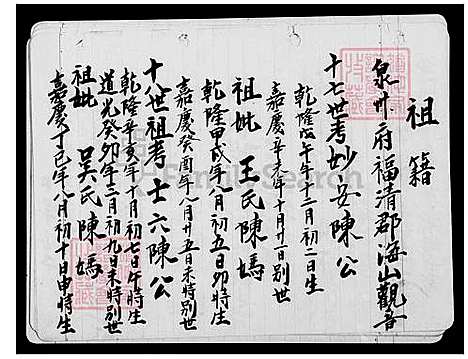 祖籍
泉州府福清郡海山觀音
十七世考妙安陳公
乾隆戊午年十二月初一日生
嘉慶辛未年十月廿一日別世
祖妣王氏陳媽
乾隆甲戌年八月初五日卯時生
嘉慶癸酉年八月廿五日未時別世
十八世祖考士六陳公
乾隆辛亥年十月初七日午時生
道光癸卯年三月初九日未時別世
祖妣吳氏陳媽
嘉慶丁巳年八月初十日申時生
FamilySearch